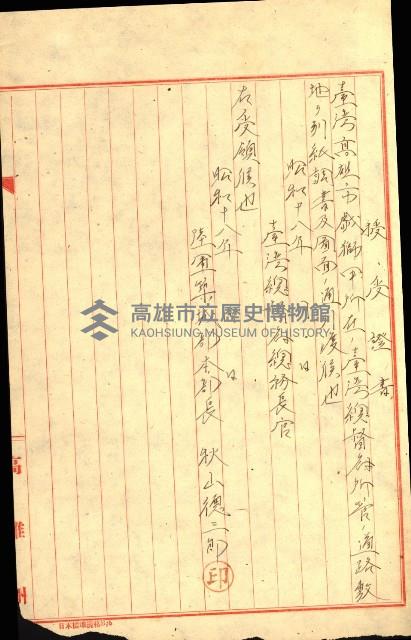 授受證書
臺灣高雄市戲獅甲所在ノ臺灣總督府所管ノ道路敷
地ヲ別紙調書及圖面ノ通渡候也
昭和十八年 日
臺灣總督府總務長官
右受領候也
昭和十八年 日
陸軍築城部本部長 秋山德三郎 印
高雄州
高雄市立歷史博物館
KAOHSIUNG MUSEUM OF HISTORY
日本標準規格B5